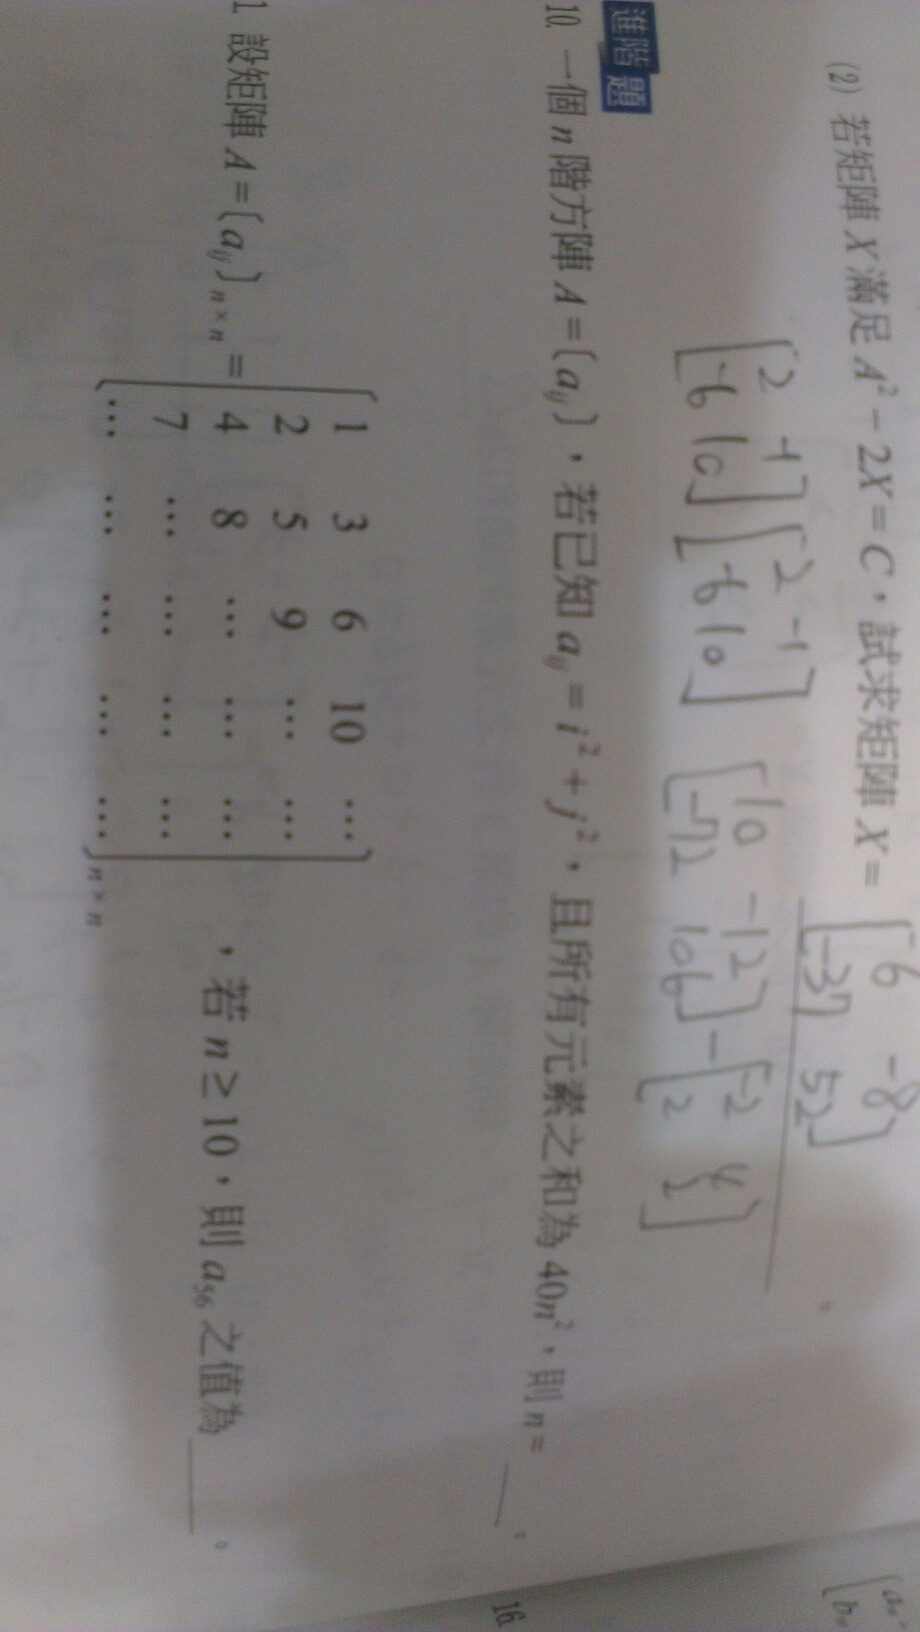 (2) 若矩陣 X 滿足 A² − 2X = C，試求矩陣 X = [-6 -8
-37 52] 。
[-2 -1 [-2 -1 [10 -12 - [-2 4
-6 10] -6 10] -72 106] 2 2]
進階題
10. 一個 n 階方陣 A = [aᵢⱼ]，若已知 aᵢⱼ = i² + j²，且所有元素之和為 40n²，則 n = ＿＿。
1 設矩陣 A = [aᵢⱼ]ₙ×ₙ =
1 3 6 10 …
2 5 9 … …
4 8 … … …
7 … … … …
… … … … …
n×n
，若 n ≥ 10，則 a₅₆ 之值為＿＿。
16.